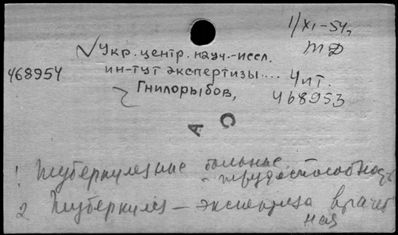 1/XI-54.
Укр. центр. науч.-иссл.
ТД
468954
ин-тут экспертизы....
Чит.
Гнилорыбов,
468953
А С
1 Туберкулезные больные - трудоспособность
2 Туберкулез - экспертиза врачебная